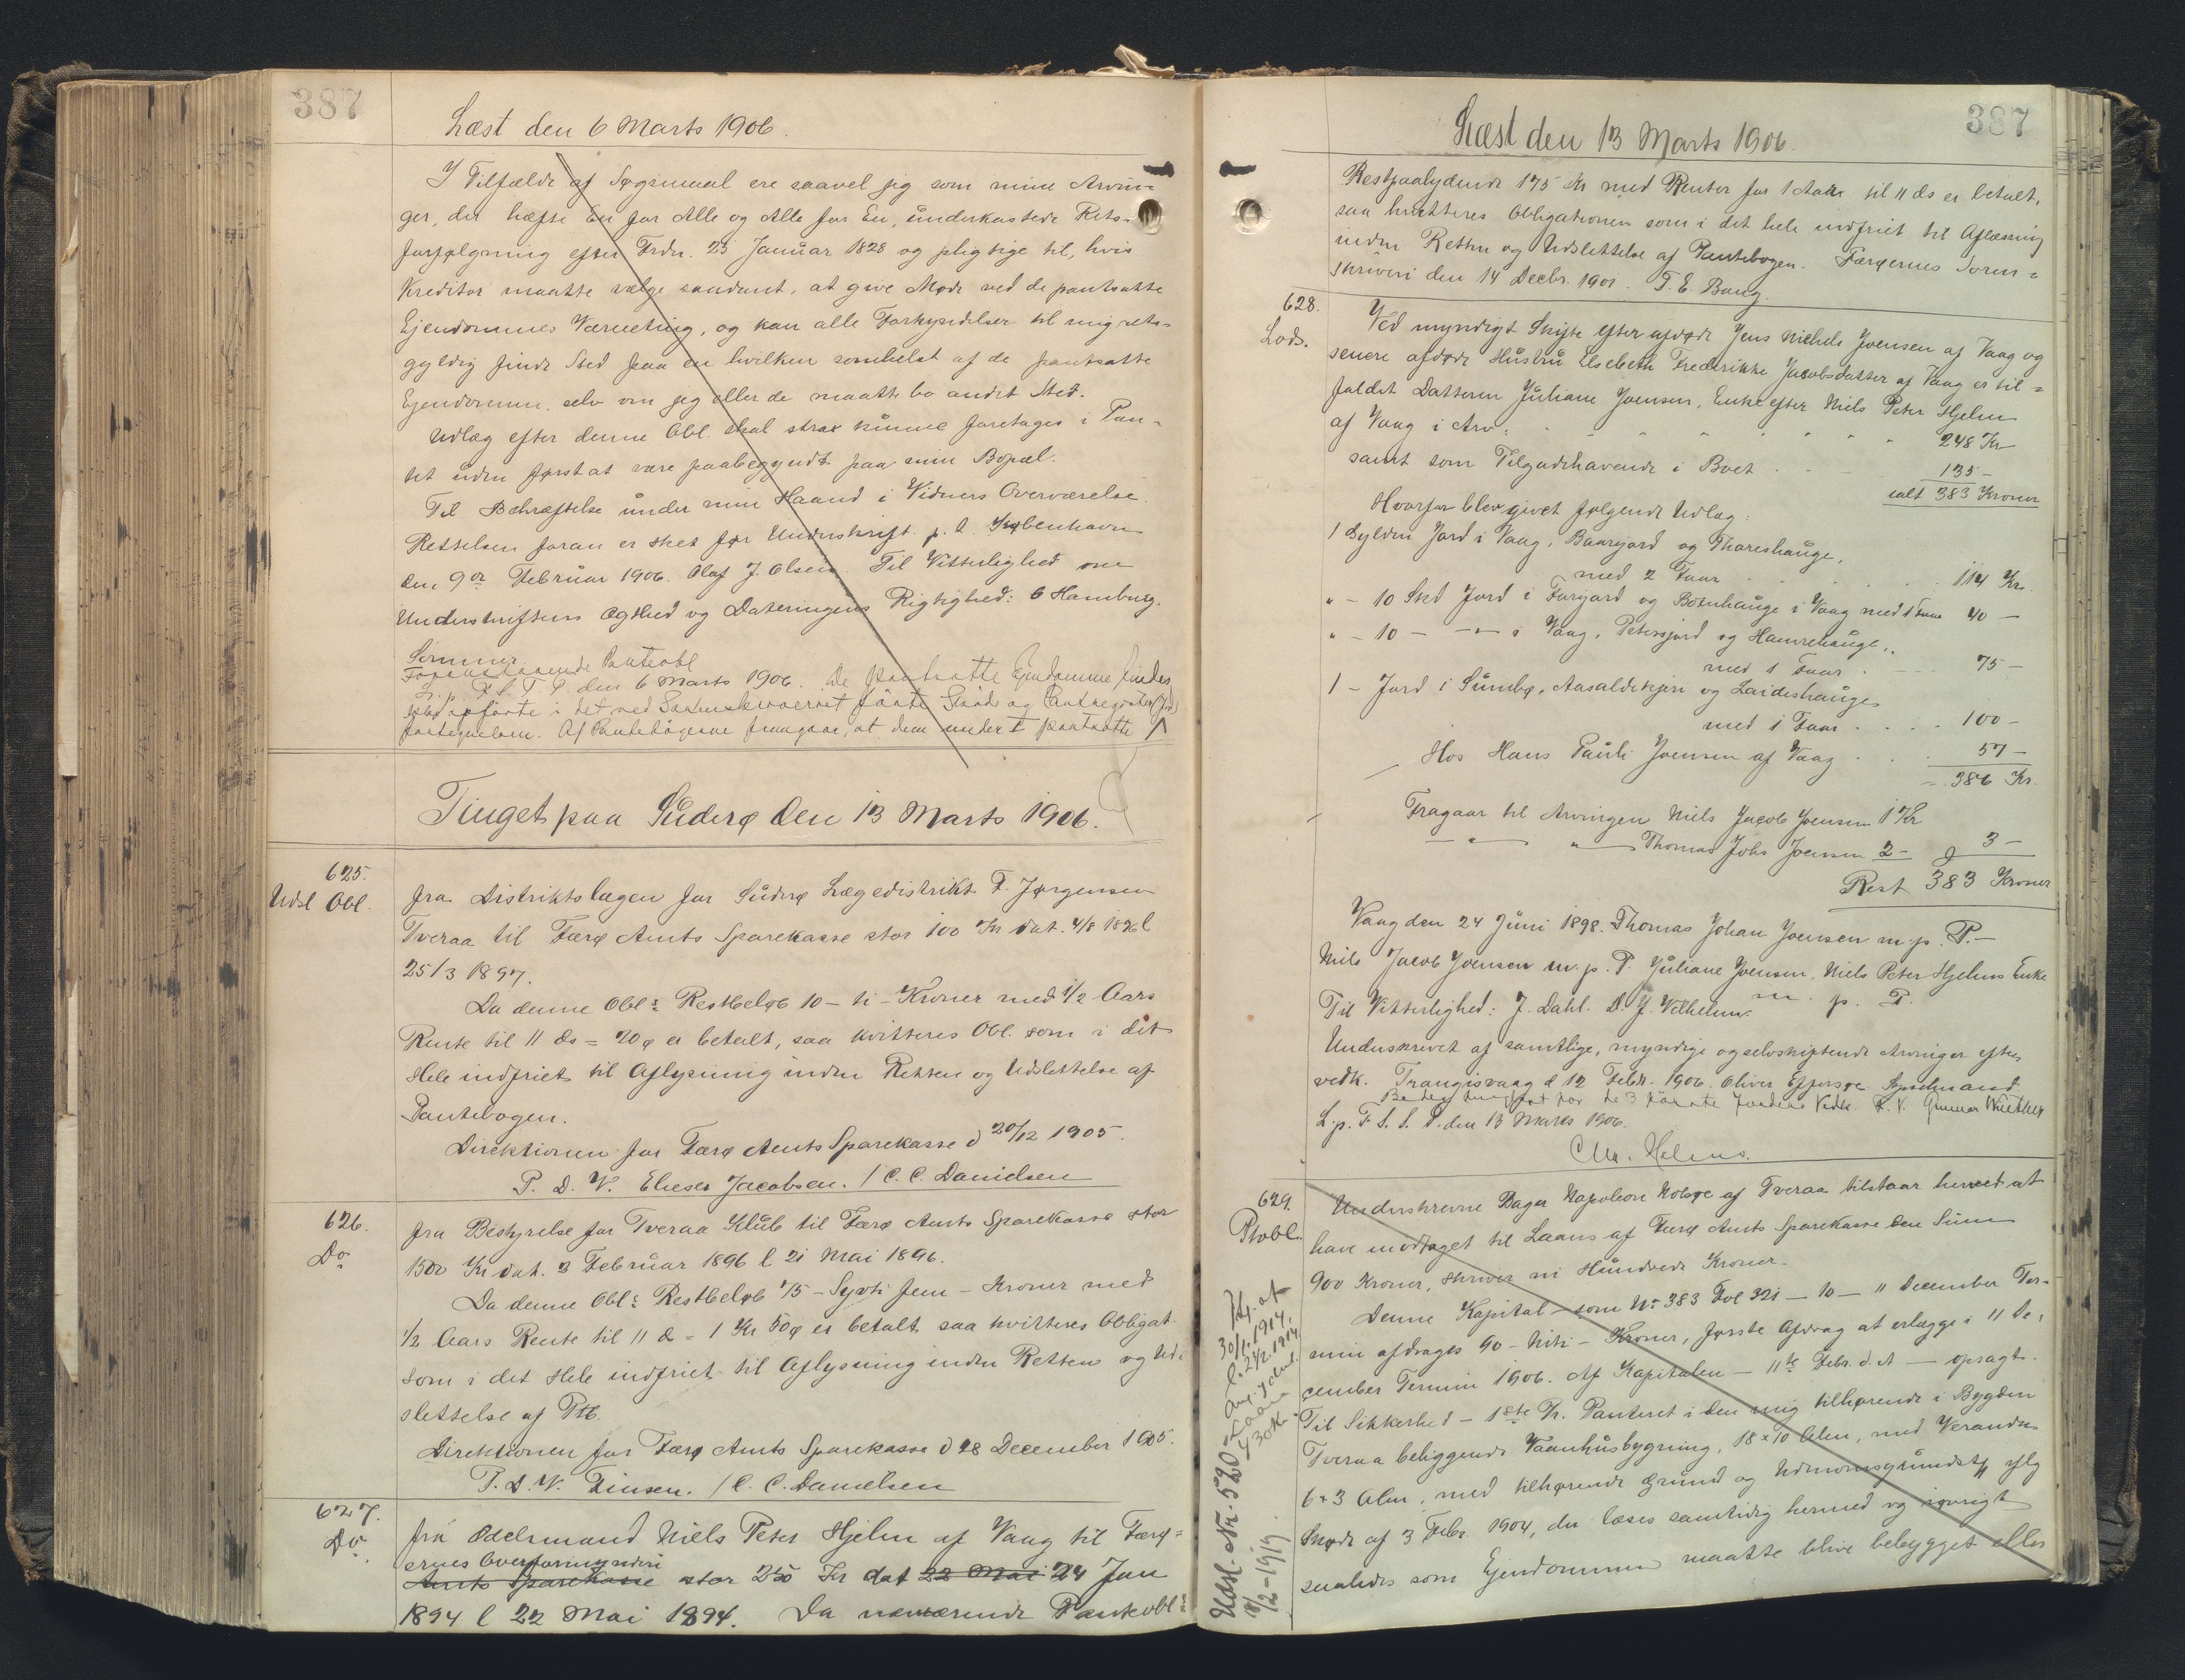 387
Læst den 6 Marts 1906.
I Tilfælde af Søgsmaal ere saavel jeg som mine Arvin-
ger, der hæfte En for Alle og Alle for En, underkastede Rets-
forfølgning efter Frdn. 25 Januar 1828 og pligtige til, hvis
Kreditor maatte vælge saadant, at give Møde ved de pantsatte
Ejendommes Værneting, og kan alle Forkyndelser til mig rets-
gyldig finde Sted paa en hvilken somhelst af de pantsatte
Ejendomme, selv om jeg eller de maatte bo andet Sted.
Udlæg efter denne Obl. skal strax kunne foretages i Pan-
tet uden først at være paabegyndt paa min Bopæl.
Til Bekræftelse under min Haand i Vidners Overværelse.
Rettelsen foran er sket før Underskrift. p. t. København
den 9de Februar 1906. Olaf J. Olsen. Til Vitterlighed om
Underskriftens Ægthed og Dateringens Rigtighed: C Hamburg.
Foranstaaende Panteobl
den 6 Marts 1906. De pantsatte Ejendomme findes
opførte i det ved Sorenskriveriet førte Skøde og Panteregister
fortegnelsen. Af Pantebøgerne fremgaar, at dem under I pantsatte
Tinget paa Suderø den 13 Marts 1906.
625.
Udsl Obl.
fra Distriktslægen for Suderø Lægedistrikt F. Jørgensen
Tveraa til Færø Amts Sparekasse stor 100 Kr dat. 4/8 1896 l
25/3 1897.
Da denne Obl: Restbeløb 10 - ti - Kroner med 1/2 Aars
Rente til 11 ds = 20 ø er betalt, saa kvitteres Obl. som i det
Hele indfriet til Aflysning inden Retten og Udslettelse af
Pantebogen.
Direktionen for Færø Amts Sparekasse d 20/12 1905.
P. D. V. Elieser Jacobsen. / C. C. Danielsen
626.
Do
fra Bestyrelse for Tveraa Klub til Færø Amts Sparekasse stor
1500 Kr dat. 3 Februar 1896 l 21 Mai 1896.
Da denne Obl: Restbeløb 75 - Syvti fem - Kroner med
1/2 Aars Rente til 11 ds = 1 Kr 50 ø er betalt saa kvitteres Obligat.
som i det Hele indfriet til Aflysning inden Retten og Ud-
slettelse af Ptb.
Direktionen for Færø Amts Sparekasse d 28 December 1905.
P. D. V. Finsen. / C. C. Danielsen
627.
Do
fra Odelsmand Niels Peter Hjelm af Vaag til Færø-
ernes Overformynderi
Amts Sparekasse stor 250 Kr dat 22 Mai 24 Jan
1894 l 22 Mai 1894. Da nærværende Panteobl:
387
Læst den 13 Marts 1906.
Restpaalydende 175 Kr med Renter for 1 Aar til 11 ds er betalt,
saa kvitteres Obligationen som i det hele indfriet til Aflæsning
inden Retten og Udslettelse af Pantebogen. Færøernes Soren-
skriveri den 14 Decbr. 1901. T. E. Bang.
628.
Lods.
Ved myndigt Skifte efter afdøde Jens Michels Joensen af Vaag og
senere afdøde Hustru Elsebeth Frederikke Jacobsdatter af Vaag er til-
faldet Datteren Juliane Joensen, Enke efter Niels Peter Hjelm
af Vaag i Arv: 248 Kr
samt som Tilgodehavende i Boet 135 -
ialt 383 Kroner
Hvorfor blev givet følgende Udlæg:
1 Gylden Jord i Vaag, Baargard og Thareshauge,
med 2 Faar 114 Kr.
" - 10 Skd Jord i Furgard og Botnhauge i Vaag med 1 Faar 40 -
" - 10 - -"- i Vaag, Petersjord og Hamrehauge,
med 1 Faar 75 -
1 - Jord i Sumbø, Aasaldekjen og Laideshauge
med 1 Faar 100 -
Hos Hans Pauli Joensen af Vaag 57 -
= 386 Kr.
Fragaar til Arvingen Niels Jacob Joensen 1 Kr
- " - " - Thomas Johs Joensen 2 - 3 -
Rest 383 Kroner
Vaag den 24 Juni 1898. Thomas Johan Joensen m. p. P. -
Niels Jacob Joensen m. p. P. Juliane Joensen, Niels Peter Hjelms Enke
m. p. P.
Til Vitterlighed: J. Dahl. D. J. Vilhelm.
Underskrevet af samtlige, myndige og selvskiftende Arvinger efter
vedk. Trangisvaag d 12 Febr. 1906. Oliver Effersøe Sysselmand.
for de 3 første Jorders Vedk.
L. p. F. S. S. T. den 13 Marts 1906.
Chr. Helms.
629.
Ptobl.
Underskrevne Dager Napoleon Nolsøe af Tveraa tilstaar herved at
have modtaget til Laans af Færø Amts Sparekasse den Sum
900 Kroner, skriver ni Hundrede Kroner.
Denne Kapital - som No 383 Fol 321 - 10 - 11 December Ter-
min afdrages 90 - Niti - Kroner, første Afdrag at erlægge i 11 De-
cember Termin 1906. Af Kapitalen - 11te Febr. d. A - opsagt.
Til Sikkerhed - 1ste Pr. Panteret i den mig tilhørende i Bygden
Tveraa beliggende Vaanhusbygning, 18 x 10 Alen, med Veranda
6 x 3 Alen, med tilhørende Grund og Udmonsgrundst, iflg
Skøde af 3 Febr. 1904, der læses samtidig hermed og iøvrigt
saaledes som Ejendommen maatte blive bebygget eller
30/1 1914.
l. 24/2 1914
Udsl. Nr. 520
8/2 - 1919.